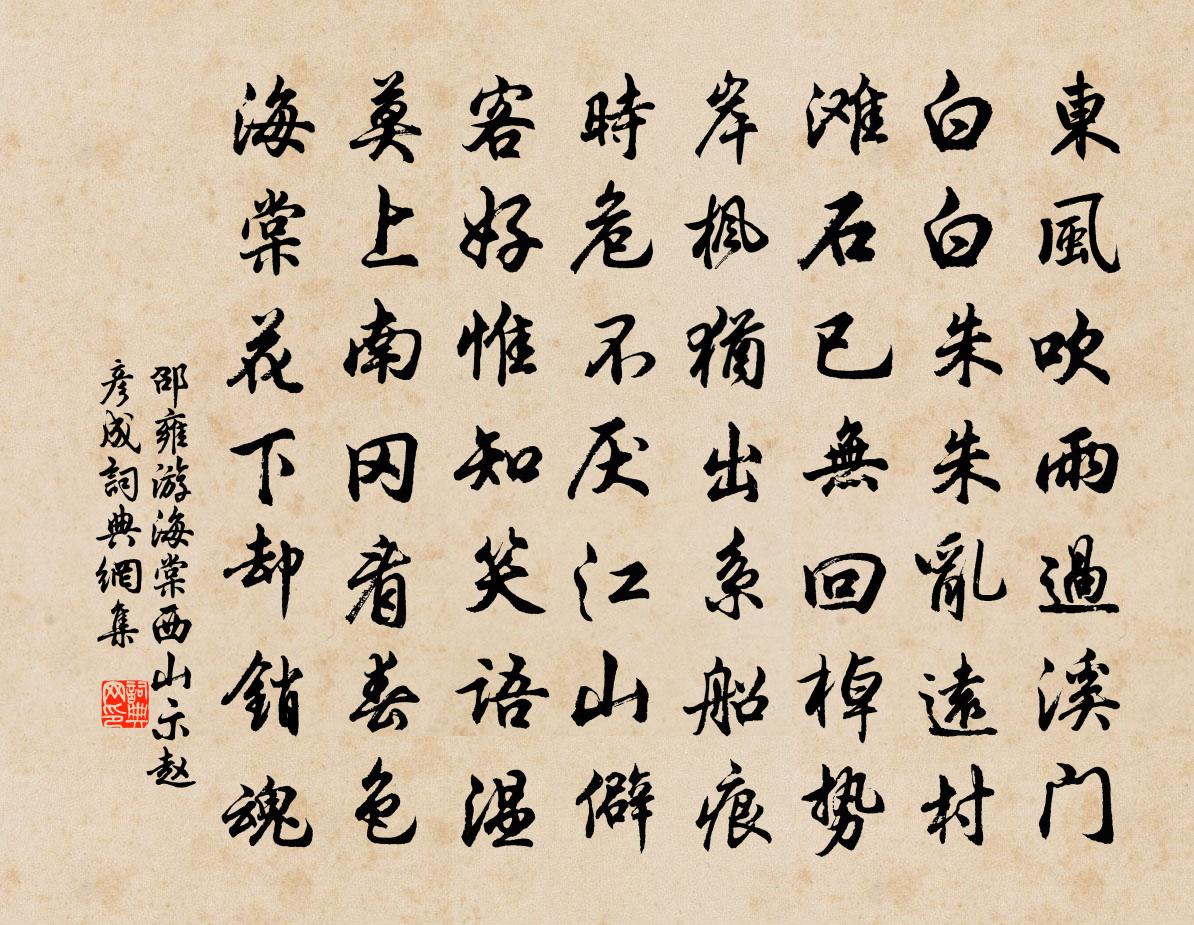 東風吹雨過溪门
白白朱朱亂遠村
滩石已無回棹势
岸楓猶出系船痕
時危不厌江山僻
客好惟知笑语温
莫上南冈看春色
海棠花下却銷魂
邵雍游海棠西山示赵
彦成詞典網集
詞典网印